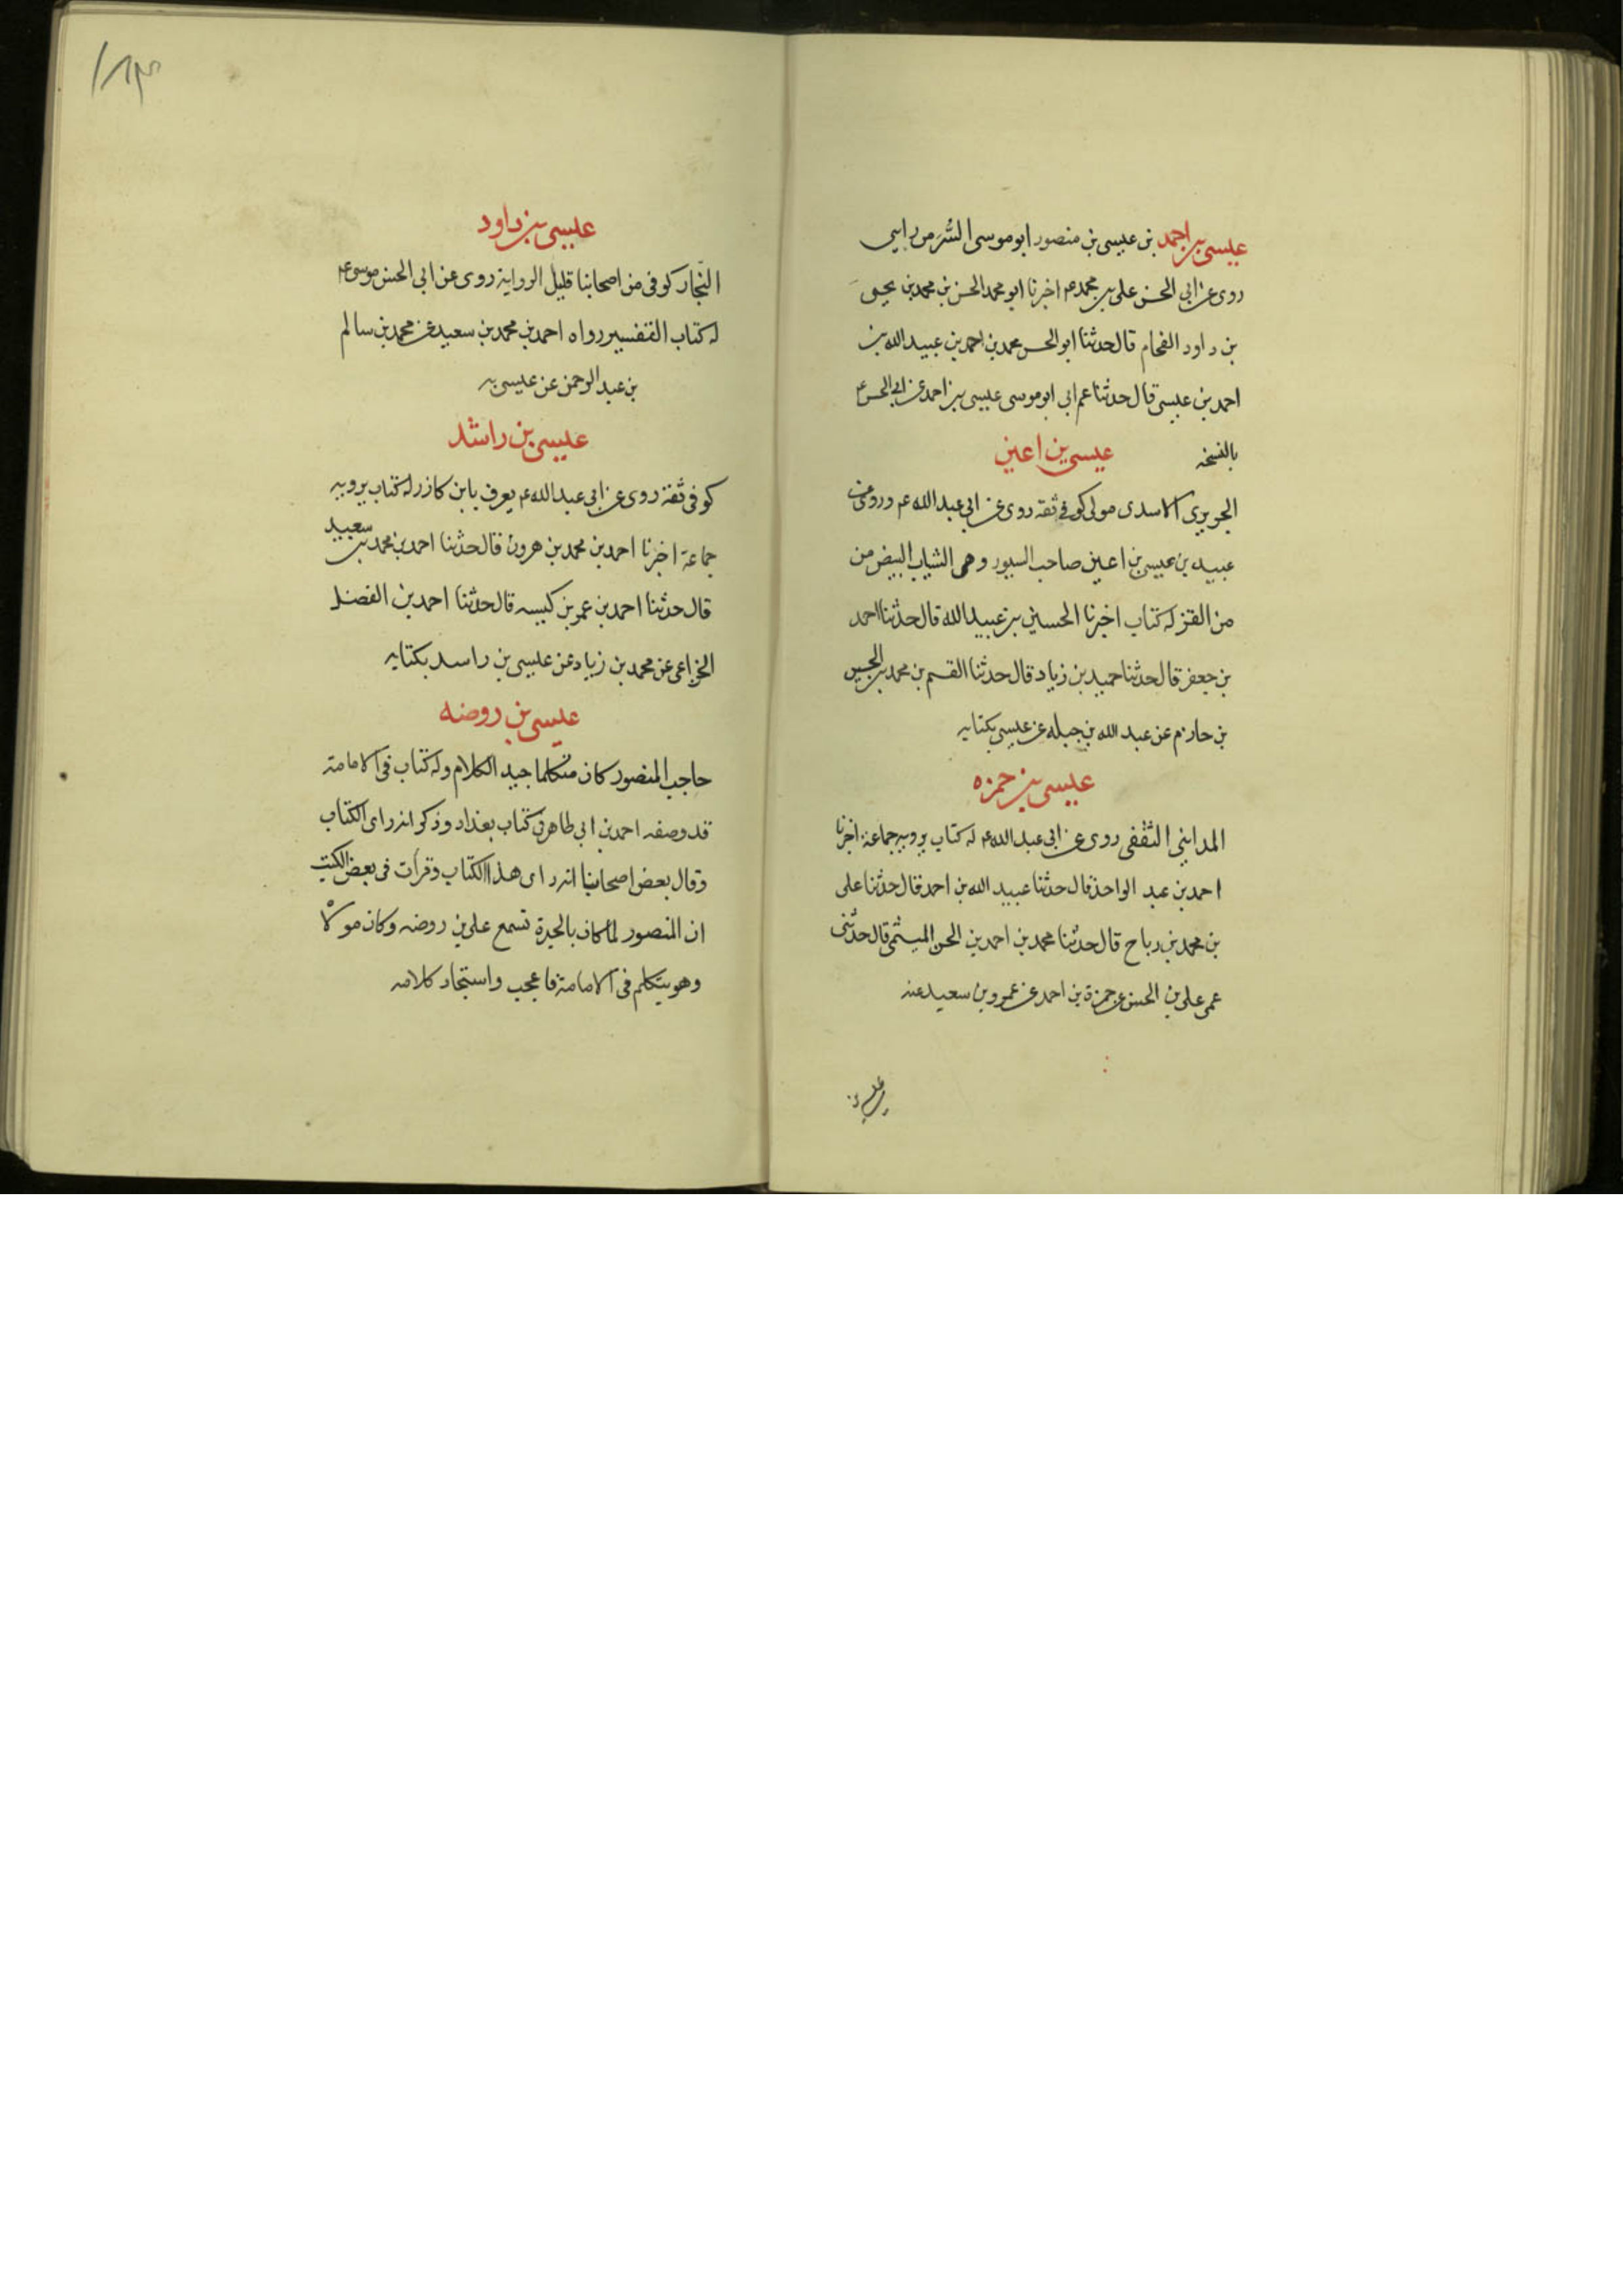 عيسى بن احمد بن عيسى بن منصور ابو موسى السر من رايى
روى عن ابى الحسن على بن محمد عم اخبرنا ابو محمد الحسن بن محمد بن يحيى
بن داود الفحام قال حدثنا ابو الحسن محمد بن احمد بن عبيد الله بن
احمد بن عيسى قال حدثنا عم ابى ابو موسى عيسى بن احمد عن ابى الحسن ع
بالنسخه عيسى بن اعين
الجريرى الاسدى مولى كوفى ثقه روى عن ابى عبد الله عم وروى عن
عبيد بن عيسى بن اعين صاحب السيور وهى الثياب البيض من
من القز له كتاب اخبرنا الحسين بن عبيد الله قال حدثنا احمد
بن جعفر قال حدثنا حميد بن زياد قال حدثنا القسم بن محمد بن الحسين
بن حازم عن عبد الله بن جبله عن عيسى بكتابه
عيسى بن حمزه
المدايني الثقفى روى عن ابى عبد الله عم له كتاب يرويه جماعة اخبرنا
احمد بن عبد الواحد قال حدثنا عبيد الله بن احمد قال حدثنا على
بن محمد بن رباح قال حدثنا محمد بن احمد بن الحسن الميثمى قال حدثنى
عمى على بن الحسن عن حمزة بن احمد عن عمرو بن سعيد عنه
عيسى بن
١٨٣
عيسى بن داود
النجار كوفى من اصحابنا قليل الرواية روى عن ابى الحسن موسى عم
له كتاب التفسير رواه احمد بن محمد بن سعيد عن محمد بن سالم
بن عبد الرحمن عن عيسى به
عيسى بن راشد
كوفى ثقة روى عن ابى عبد الله عم يعرف بابن كازر له كتاب يرويه
جماعة اخبرنا احمد بن محمد بن هرون قال حدثنا احمد بن محمد بن سعيد
قال حدثنا احمد بن عمر بن كيسبه قال حدثنا احمد بن الفضل
الخزاعى عن محمد بن زياد عن عيسى بن راسد بكتابه
عيسى بن روضه
حاجب المنصور كان متكلما جيد الكلام وله كتاب فى الامامة
قد وصفه احمد بن ابى طاهر فى كتاب بغداد وذكر انه راى الكتاب
وقال بعض اصحابنا انه راى هذا الكتاب وقرأت فى بعض الكتب
ان المنصور لما كان بالحيرة تسمع على بن روضه وكان مولا
وهو يتكلم فى الامامة فاعجب واستجاد كلامه